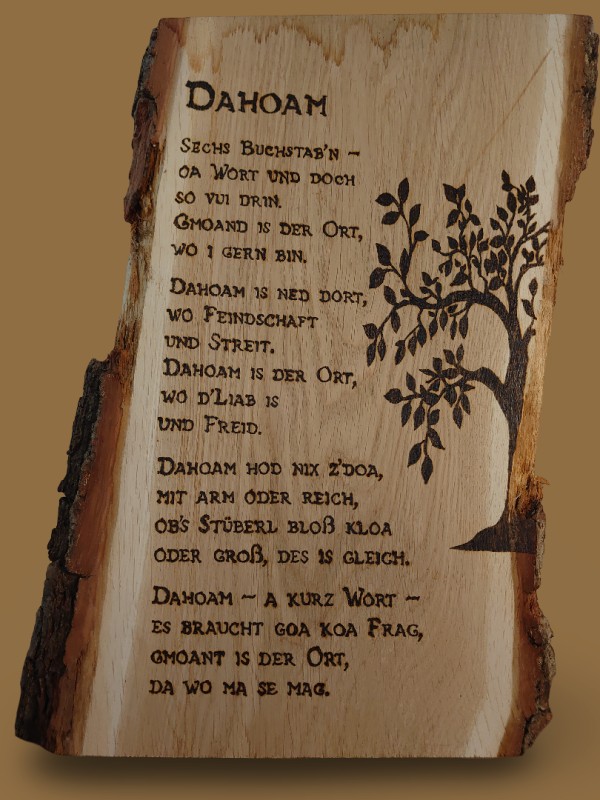 Dahoam
Sechs Buchstab'n ~
oa Wort und doch
so vui drin.
Gmoand is der Ort,
wo i gern bin.
Dahoam is ned dort,
wo Feindschaft
und Streit.
Dahoam is der Ort,
wo d'Liab is
und Freid.
Dahoam hod nix z'doa,
mit arm oder reich,
ob's Stüberl bloß kloa
oder groß, des is gleich.
Dahoam ~ a kurz Wort ~
es braucht goa koa Frag,
gmoant is der Ort,
da wo ma se mag.